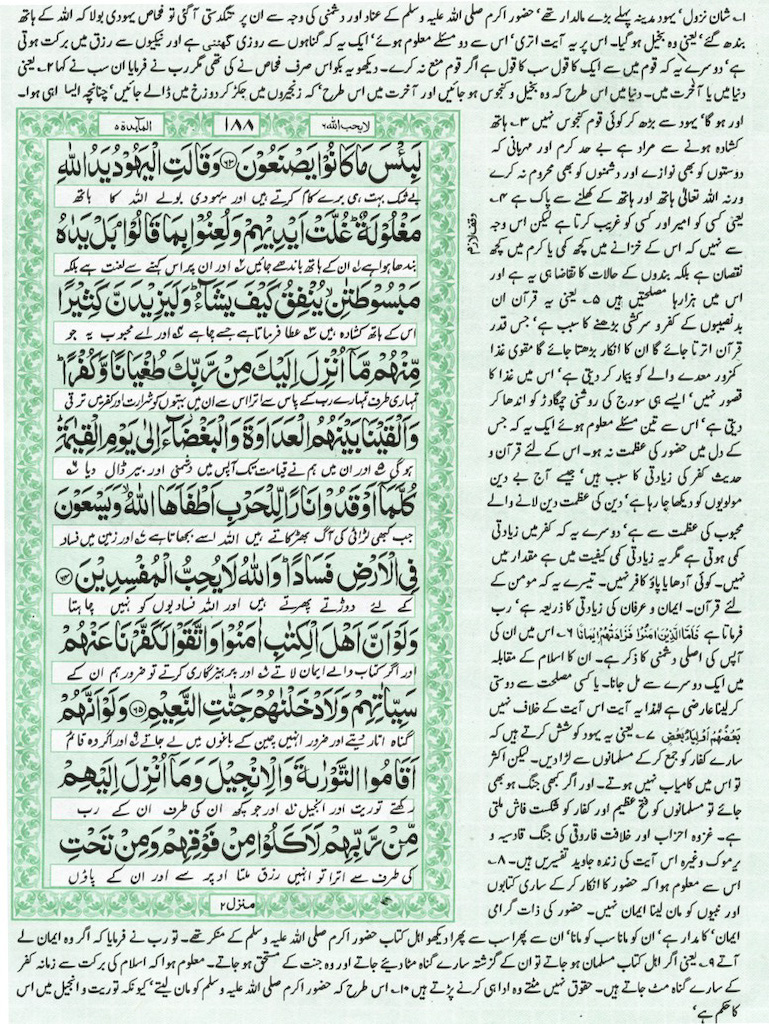 ۱۔ شان نزول' یہود مدینہ پہلے بڑے مالدار تھے' حضور اکرم صلی اللہ علیہ وسلم کے عناد اور دشمنی کی وجہ سے ان پر تنگدستی آگئی تو فحاص یہودی بولا کہ اللہ کے ہاتھ
بندھ گئے' یعنی وہ بخیل ہو گیا۔ اس پر یہ آیت اتری' اس سے دو مسئلے معلوم ہوئے' ایک یہ کہ گناہوں سے روزی گھٹتی ہے اور نیکیوں سے رزق میں برکت ہوتی
ہے' دوسرے یہ کہ قوم میں سے ایک کا قول سب کا قول ہے اگر قوم منع نہ کرے۔ دیکھو یہ بکواس صرف فحاص نے کی تھی مگر رب نے فرمایا ان سب نے کہا ۲۔ یعنی
دنیا میں یا آخرت میں۔ دنیا میں اس طرح کہ وہ بخیل و کنجوس ہو جائیں اور آخرت میں اس طرح' کہ زنجیروں میں جکڑ کر دوزخ میں ڈالے جائیں' چنانچہ ایسا ہی ہوا۔
لایحب اللہ ۶
۱۸۸
المآیدۃ ۵
لَبِئْسَ مَا كَانُوْا يَصْنَعُوْنَ ﴿۶۳﴾ وَقَالَتِ الْيَهُوْدُ يَدُ اللّٰهِ
بے شک بہت ہی برے کام کرتے ہیں اور یہودی بولے اللہ کا ہاتھ
مَغْلُوْلَةٌ ؕ غُلَّتْ اَيْدِيْهِمْ وَلُعِنُوْا بِمَا قَالُوْا ۘ بَلْ يَدٰهُ
بندھا ہوا ہے ۱ ان کے ہاتھ باندھے جائیں ۲ اور ان پر اس کہنے سے لعنت ہے بلکہ
مَبْسُوْطَتٰنِ ۙ يُنْفِقُ كَيْفَ يَشَآءُ ؕ وَلَيَزِيْدَنَّ كَثِيْرًا
اس کے ہاتھ کشادہ ہیں ۳ عطا فرماتا ہے جسے چاہے ۴ اور اے محبوب یہ جو
مِّنْهُمْ مَّآ اُنْزِلَ اِلَيْكَ مِنْ رَّبِّكَ طُغْيَانًا وَّكُفْرًا ؕ
تمہاری طرف تمہارے رب کے پاس سے اترا اس سے ان میں بہتوں کو شرارت اور کفر میں ترقی
وَاَلْقَيْنَا بَيْنَهُمُ الْعَدَاوَةَ وَالْبَغْضَآءَ اِلٰى يَوْمِ الْقِيٰمَةِ ؕ
ہو گی ۵ اور ان میں ہم نے قیامت تک آپس میں دشمنی اور بیر ڈال دیا ۶
كُلَّمَآ اَوْقَدُوْا نَارًا لِّلْحَرْبِ اَطْفَاَهَا اللّٰهُ ۙ وَيَسْعَوْنَ
جب کبھی لڑائی کی آگ بھڑکاتے ہیں اللہ اسے بجھا تا ہے ۷ اور زمین میں فساد
فِى الْاَرْضِ فَسَادًا ؕ وَاللّٰهُ لَا يُحِبُّ الْمُفْسِدِيْنَ ﴿۶۴﴾
کے لئے دوڑتے پھرتے ہیں اور اللہ فسادیوں کو نہیں چاہتا
وَلَوْ اَنَّ اَهْلَ الْكِتٰبِ اٰمَنُوْا وَاتَّقَوْا لَكَفَّرْنَا عَنْهُمْ
اور اگر کتاب والے ایمان لاتے ۸ اور پرہیزگاری کرتے تو ضرور ہم ان کے
سَيِّاٰتِهِمْ وَلَاَدْخَلْنٰهُمْ جَنّٰتِ النَّعِيْمِ ﴿۶۵﴾ وَلَوْ اَنَّهُمْ
گناہ اتار دیتے اور ضرور انہیں چین کے باغوں میں لے جاتے ۹ اور اگر وہ قائم
اَقَامُوا التَّوْرٰىةَ وَالْاِنْجِيْلَ وَمَآ اُنْزِلَ اِلَيْهِمْ
رکھتے توریت اور انجیل ۱۰ اور جو کچھ ان کی طرف ان کے رب
مِّنْ رَّبِّهِمْ لَاَكَلُوْا مِنْ فَوْقِهِمْ وَمِنْ تَحْتِ
کی طرف سے اترا تو انہیں رزق ملتا اوپر سے اور ان کے پاؤں
منزل ۲
وقف لازم
اور ہو گا' یہود سے بڑھ کر کوئی قوم کنجوس نہیں ۳۔ ہاتھ
کشادہ ہونے سے مراد ہے بے حد کرم اور مہربانی کہ
دوستوں کو بھی نوازے اور دشمنوں کو بھی محروم نہ کرے
ورنہ اللہ تعالیٰ ہاتھ اور ہاتھ کے کھلنے سے پاک ہے ۴۔
یعنی کسی کو امیر اور کسی کو غریب کرتا ہے لیکن اس وجہ
سے نہیں کہ اس کے خزانے میں کچھ کمی یا کرم میں کچھ
نقصان ہے بلکہ بندوں کے حالات کا تقاضا ہی یہ ہے اور
اس میں ہزارہا مصلحتیں ہیں ۵۔ یعنی یہ قرآن ان
بد نصیبوں کے کفر و سرکشی بڑھنے کا سبب ہے' جس قدر
قرآن اترتا جائے گا ان کا انکار بڑھتا جائے گا مقوی غذا
کمزور معدے والے کو بیمار کر دیتی ہے' اس میں غذا کا
قصور نہیں' ایسے ہی سورج کی روشنی چمگادڑ کو اندھا کر
دیتی ہے' اس سے تین مسئلے معلوم ہوئے ایک یہ کہ جس
کے دل میں حضور کی عظمت نہ ہو۔ اس کے لئے قرآن و
حدیث کفر کی زیادتی کا سبب ہیں' جیسے آج بے دین
مولویوں کو دیکھا جا رہا ہے' دین کی عظمت دین لانے والے
محبوب کی عظمت سے ہے' دوسرے یہ کہ کفر میں زیادتی
کمی ہوتی ہے مگر یہ زیادتی کمی کیفیت میں ہے مقدار میں
نہیں۔ کوئی آدھا یا پاؤ کافر نہیں۔ تیسرے یہ کہ مومن کے
لئے قرآن۔ ایمان و عرفان کی زیادتی کا ذریعہ ہے' رب
فرماتا ہے فَاَمَّا الَّذِیْنَ اٰمَنُوْا فَزَادَتْهُمْ اِیْمَانًا ۶۔ اس میں ان کی
آپس کی اصلی دشمنی کا ذکر ہے۔ ان کا اسلام کے مقابلہ
میں ایک دوسرے سے مل جانا۔ یا کسی مصلحت سے دوستی
کر لینا عارضی ہے لہٰذا یہ آیت اس آیت کے خلاف نہیں
بَعْضُهُمْ اَوْلِیَآءُ بَعْضٍ ۷۔ یعنی یہ یہود کوشش کرتے ہیں کہ
سارے کفار کو جمع کر کے مسلمانوں سے لڑا دیں۔ لیکن اکثر
تو اس میں کامیاب نہیں ہوتے۔ اور اگر کبھی جنگ ہو بھی
جائے تو مسلمانوں کو فتح عظیم اور کفار کو شکست فاش ملتی
ہے۔ غزوہ احزاب اور خلافت فاروقی کی جنگ قادسیہ و
یرموک وغیرہ اس آیت کی زندہ جاوید تفسیریں ہیں۔ ۸۔
اس سے معلوم ہوا کہ حضور کا انکار کر کے ساری کتابوں
اور نبیوں کو مان لینا ایمان نہیں۔ حضور کی ذات گرامی
ایمان' کا مدار ہے' ان کو مانا سب کو مانا' ان سے پھرا سب سے پھرا دیکھو اہل کتاب حضور اکرم صلی اللہ علیہ وسلم کے منکر تھے۔ تو رب نے فرمایا کہ اگر وہ ایمان لے
آتے ۹۔ یعنی اگر اہل کتاب مسلمان ہو جاتے تو ان کے گزشتہ سارے گناہ مٹا دیئے جاتے اور وہ جنت کے مستحق ہو جاتے۔ معلوم ہوا کہ اسلام کی برکت سے زمانہ کفر
کے سارے گناہ مٹ جاتے ہیں۔ حقوق نہیں مٹتے وہ ادا ہی کرنے پڑتے ہیں ۱۰۔ اس طرح کہ حضور اکرم صلی اللہ علیہ وسلم کو مان لیتے' کیونکہ توریت و انجیل میں اس
کا حکم ہے'